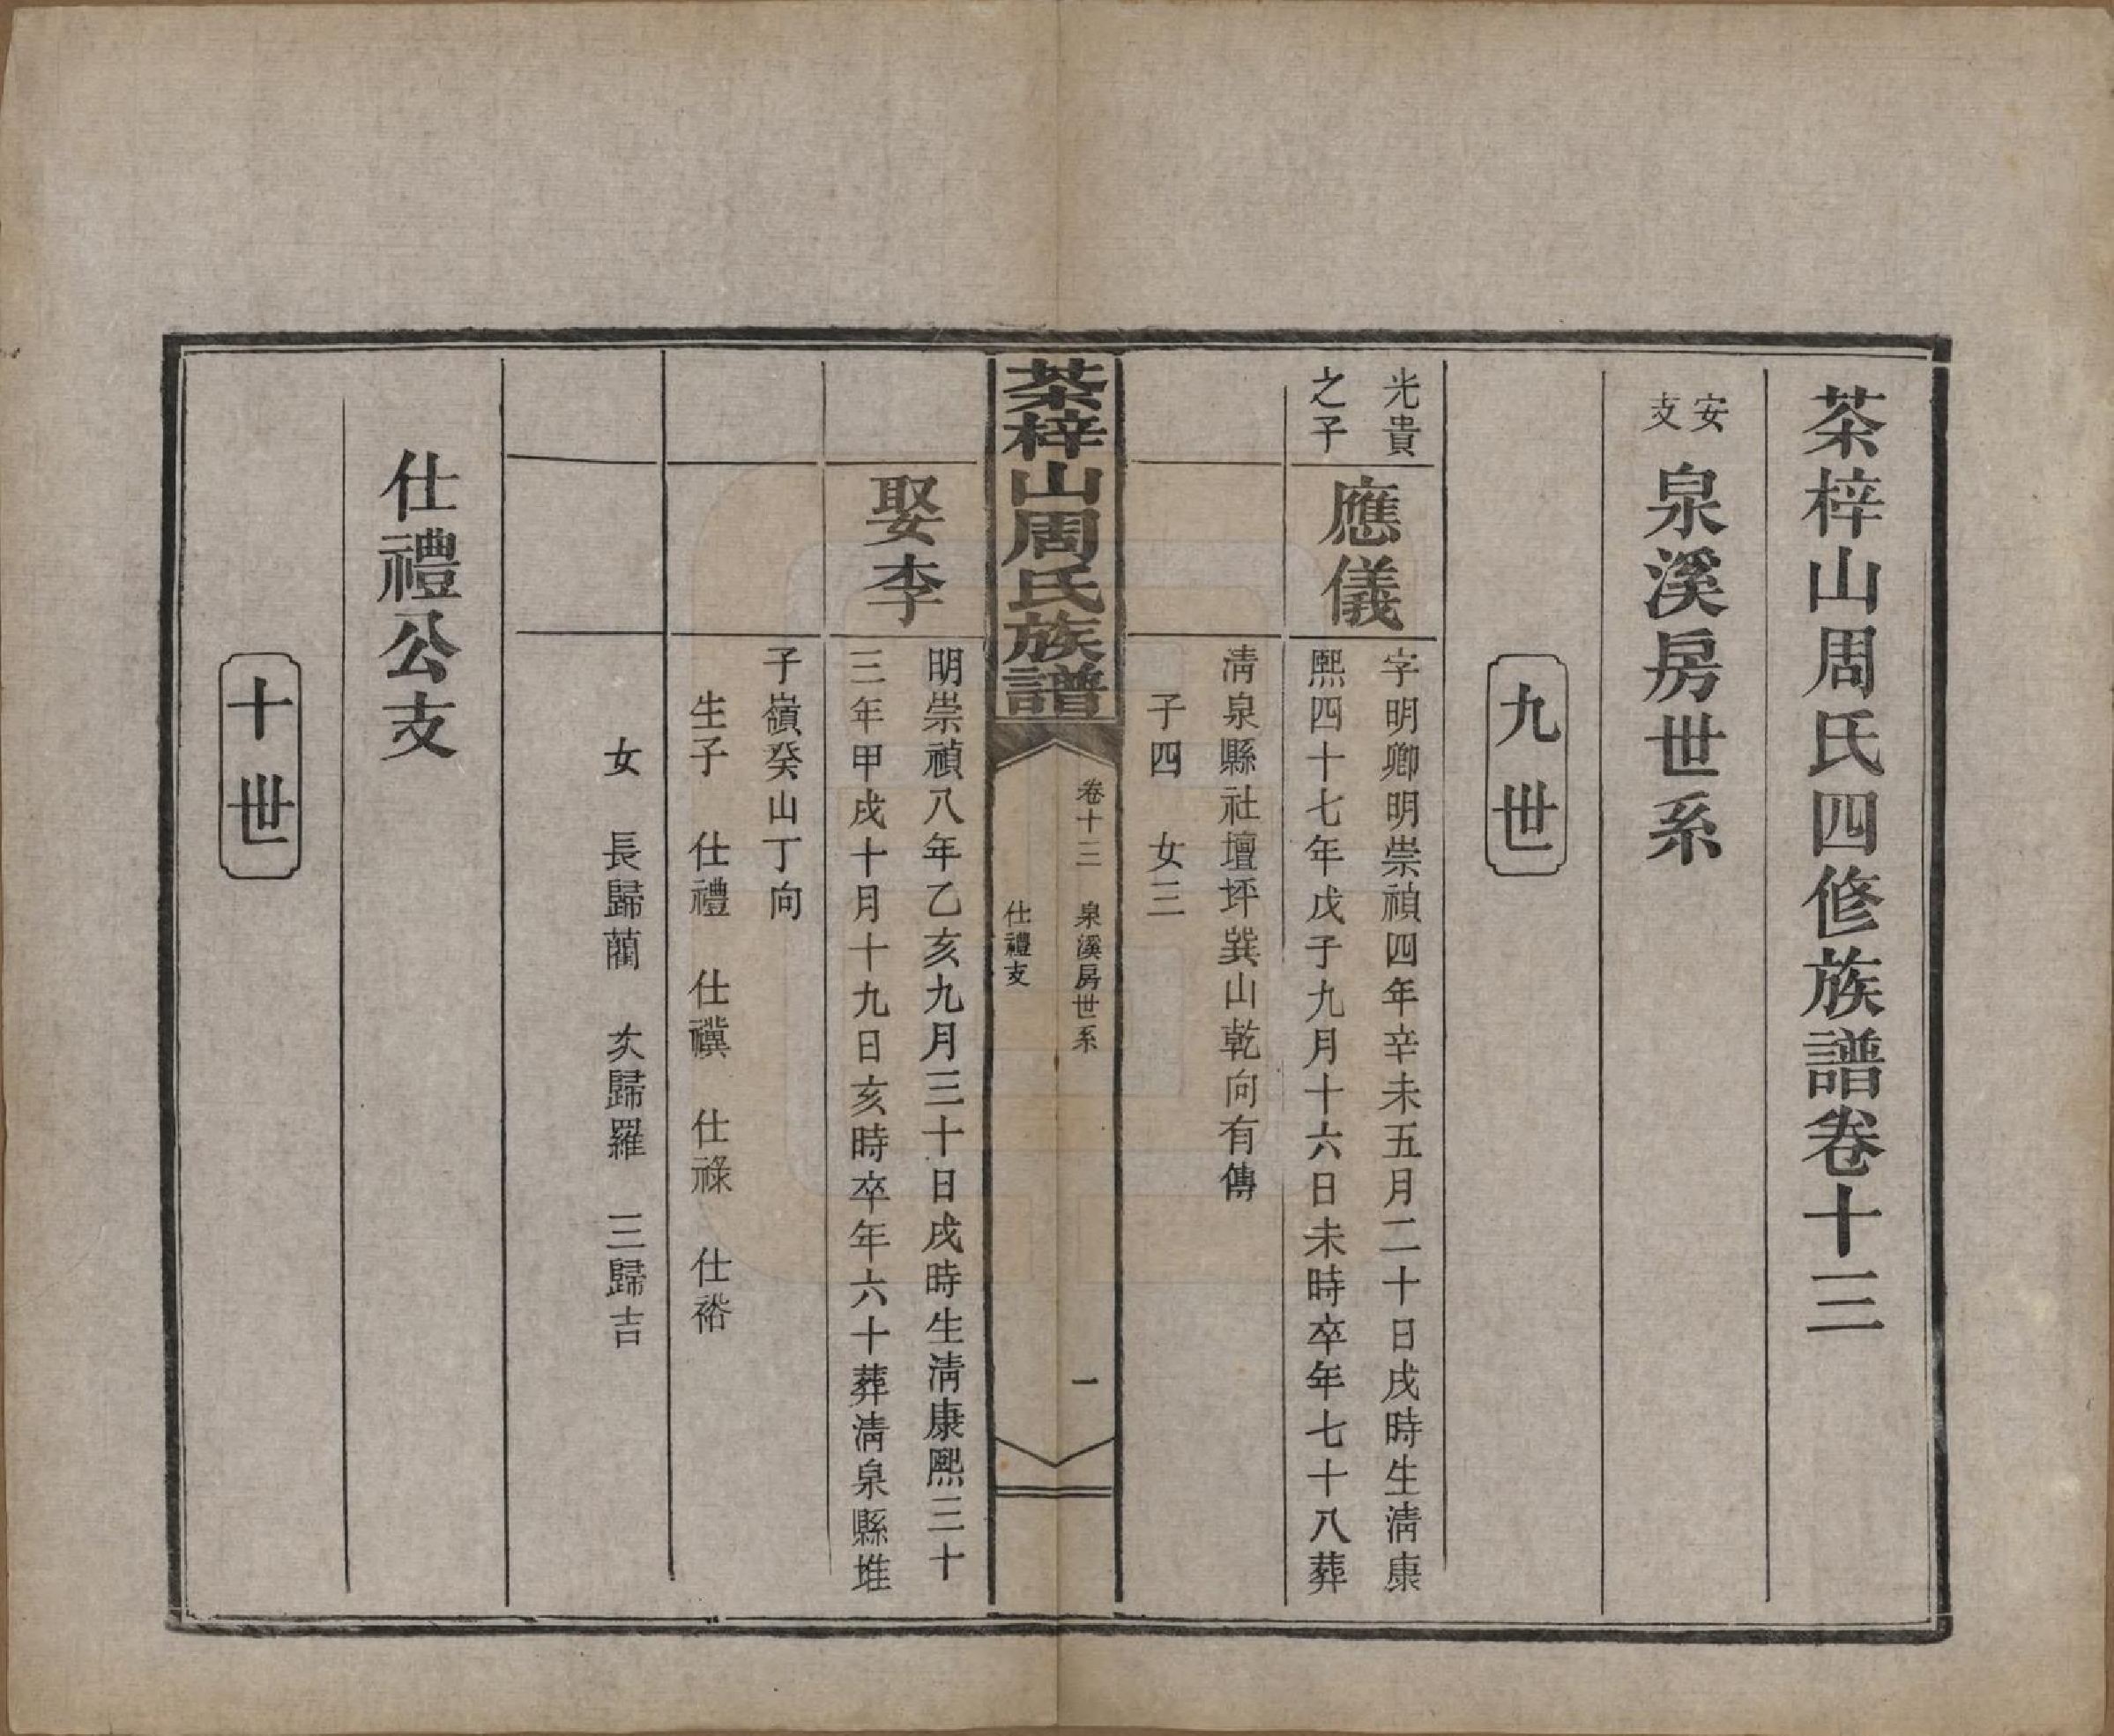 茶梓山周氏四修族譜卷十三
安支
泉溪房世系
九世
光貴之子
應儀
字明卿明崇禎四年辛未五月二十日戌時生清康
熙四十七年戊子九月十六日未時卒年七十八葬
清泉縣社壇坪巽山乾向有傳
子四 女三
茶梓山周氏族譜
卷十三 泉溪房世系 一
仕禮支
娶李
明崇禎八年乙亥九月三十日戌時生清康熙三十
三年甲戌十月十九日亥時卒年六十葬清泉縣堆
子嶺癸山丁向
生子 仕禮 仕禩 仕祿 仕裕
女 長歸藺 次歸羅 三歸吉
仕禮公支
十世